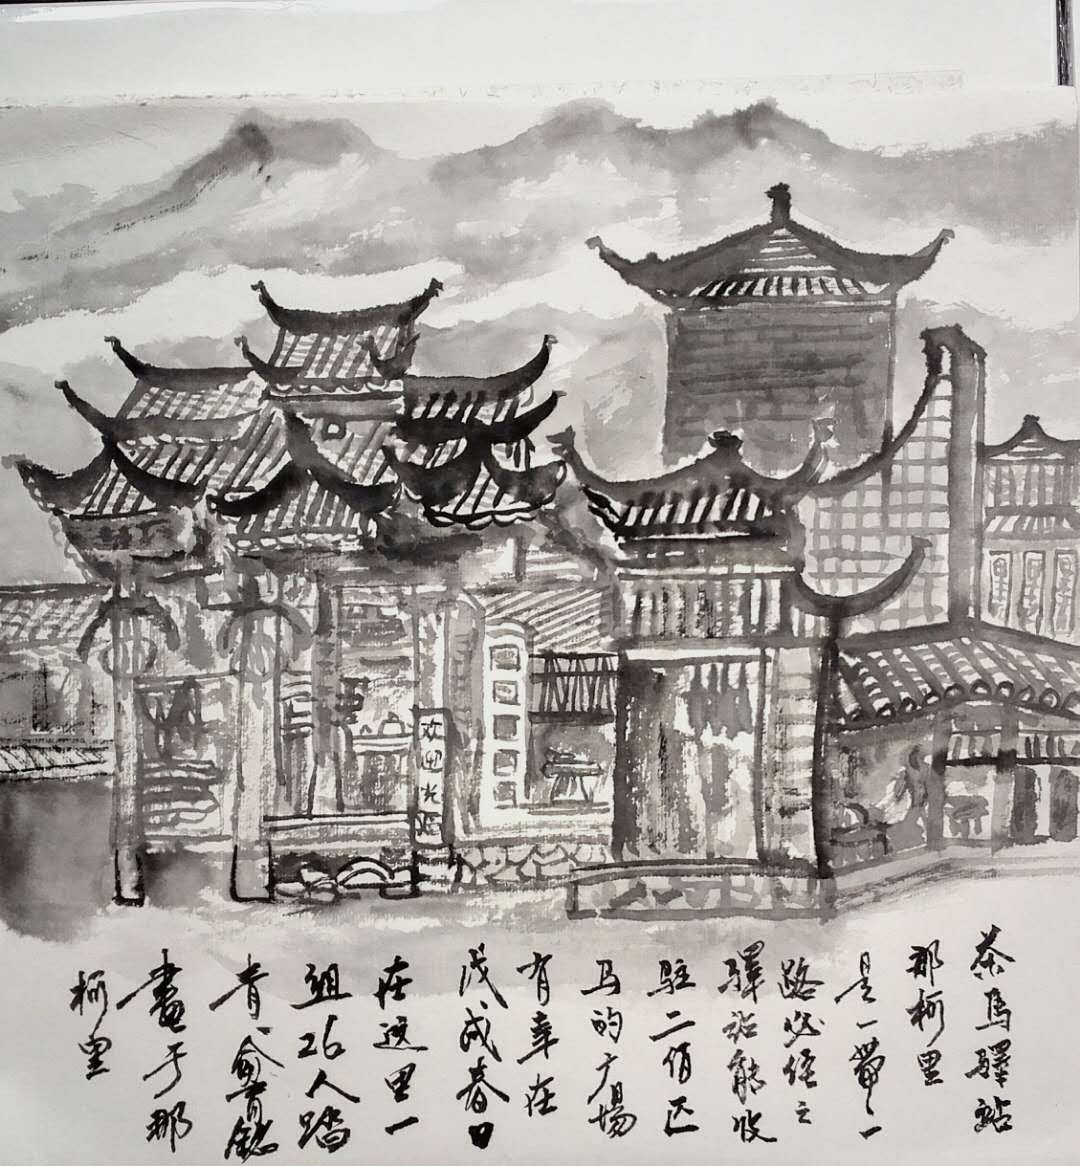 欢迎光临
茶馬驛站
那柯里
是一帶一
路必经之
驛站能收
驻二佰匹
马的广場
有幸在
戊戌春日
在这里一
组26人踏
青、俞
畫于那
柯里